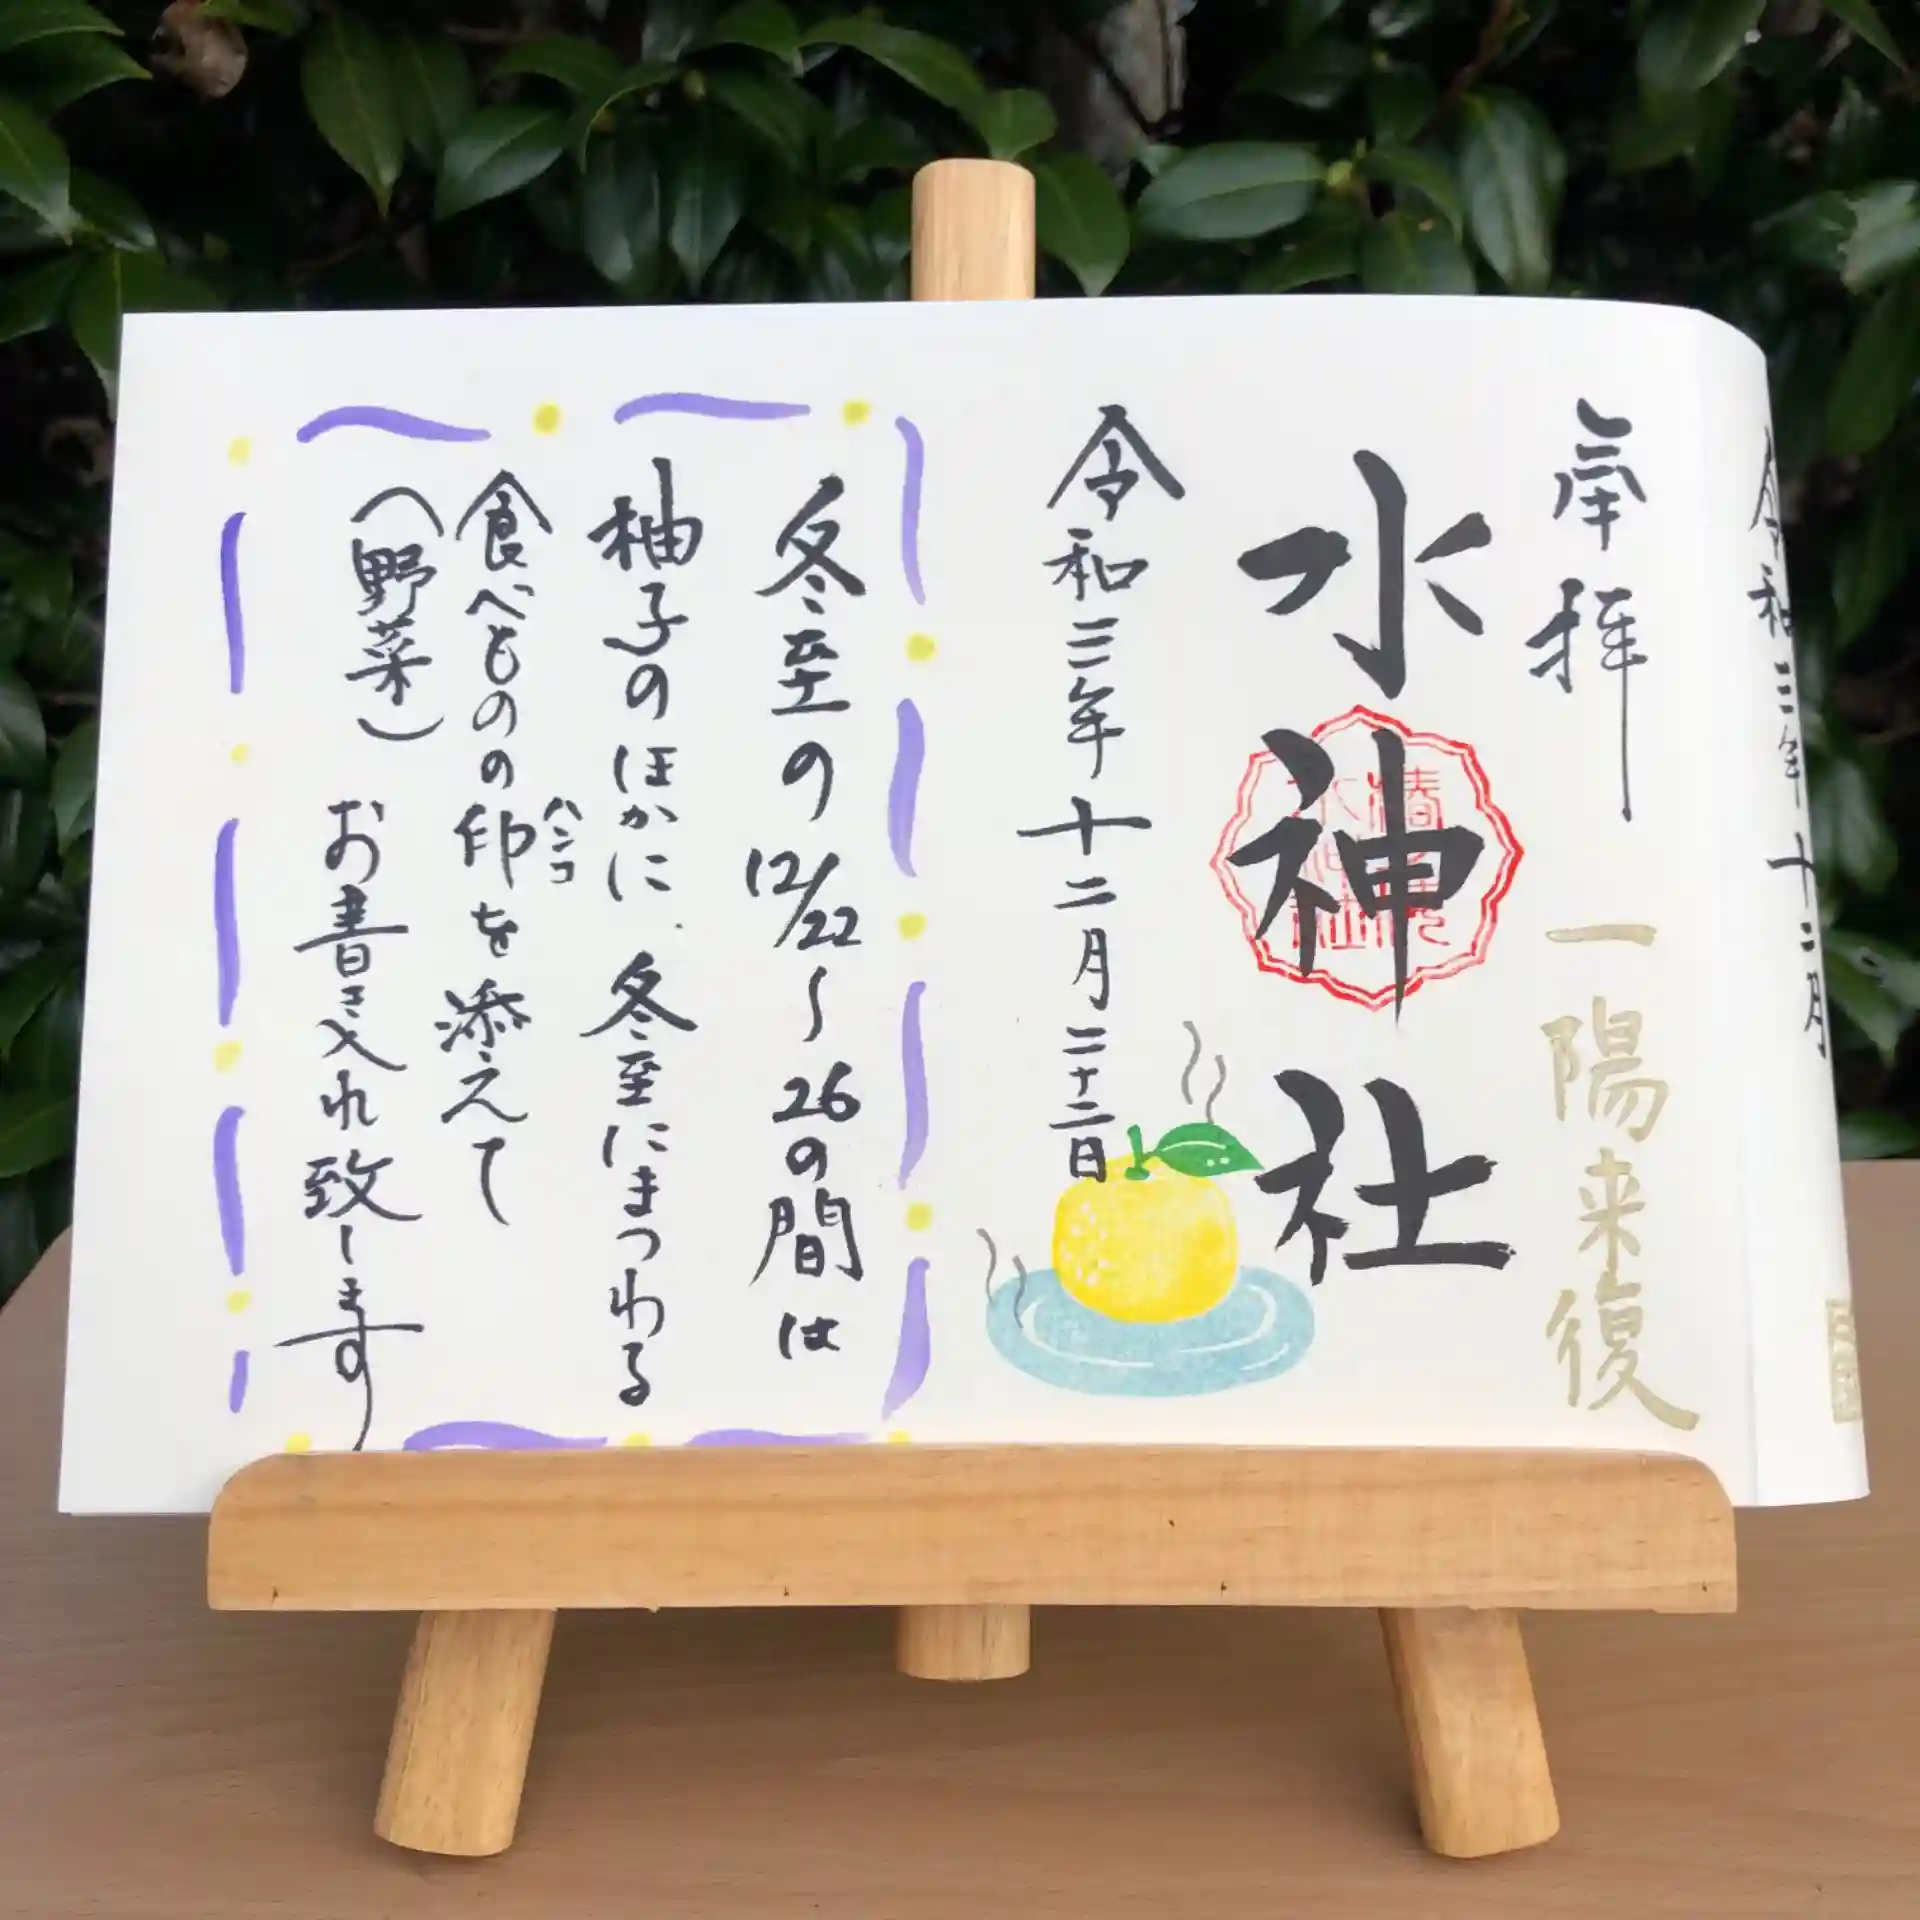 令和三年十二月
奉拝
一陽来復
水神社
令和三年十二月二十二日
冬至の12/22～26の間は
柚子のほかに、冬至にまつわる
食べものの印を添えて
ハンコ
(野菜)お書き入れ致します